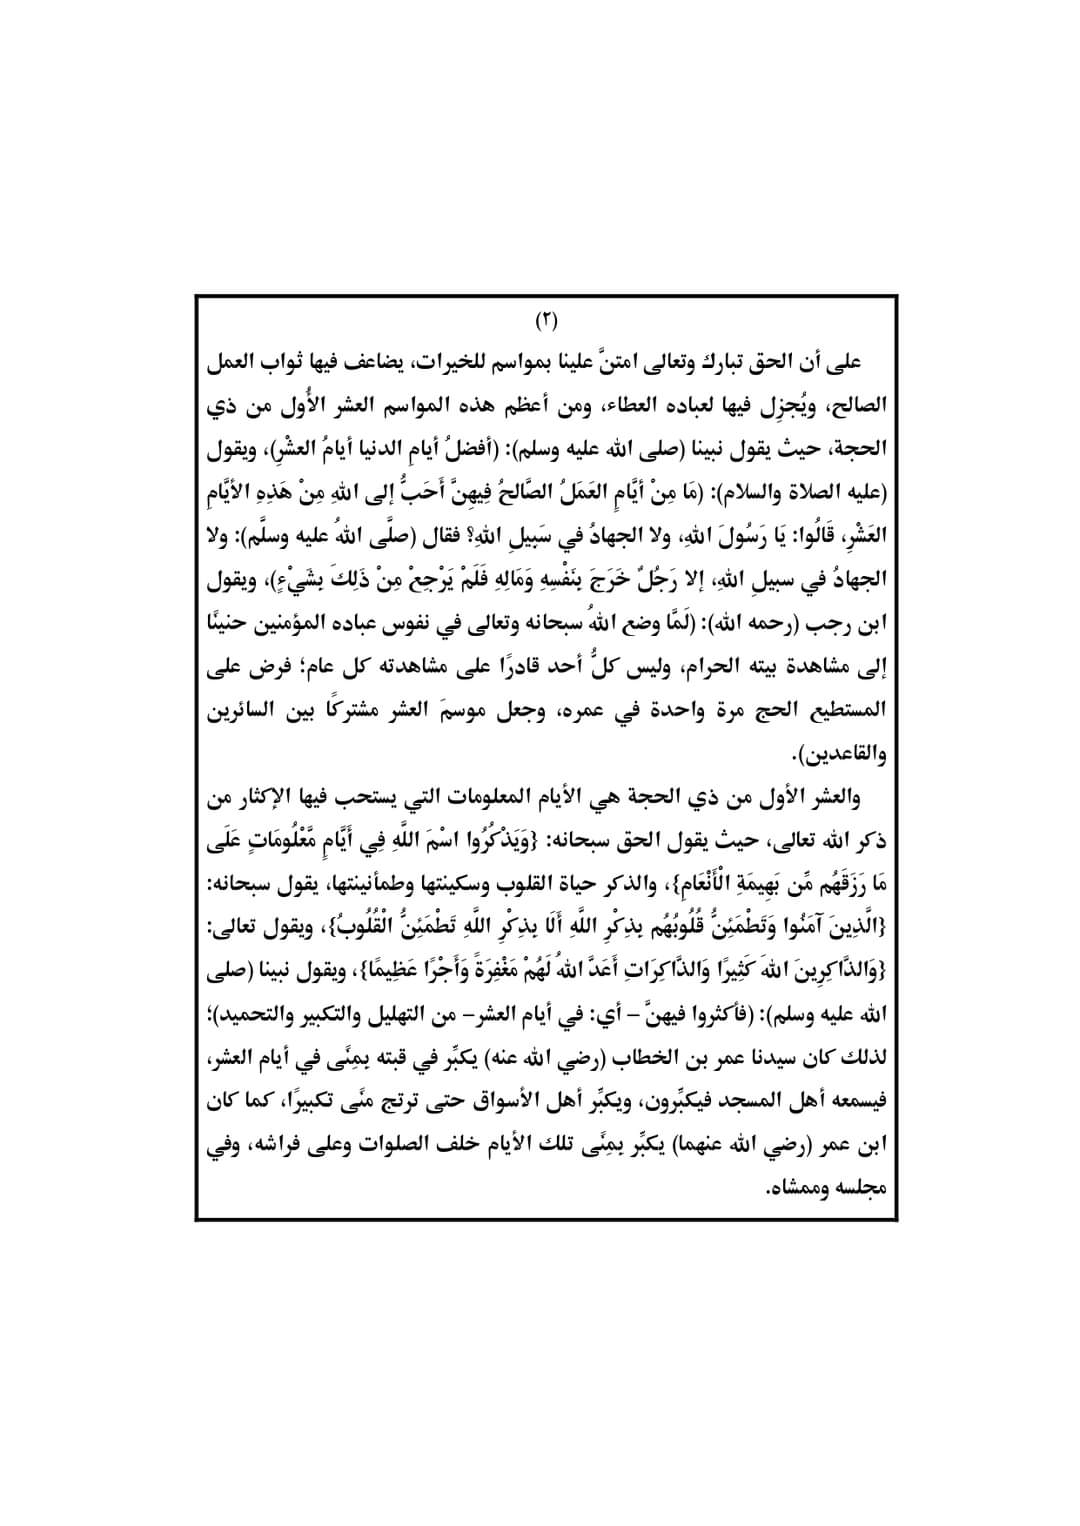 (٢)
على أن الحق تبارك وتعالى امتنَّ علينا بمواسم للخيرات، يضاعف فيها ثواب العمل
الصالح، ويُجزِل فيها لعباده العطاء، ومن أعظم هذه المواسم العشر الأُول من ذي
الحجة، حيث يقول نبينا (صلى الله عليه وسلم): (أفضلُ أيامِ الدنيا أيامُ العشْرِ)، ويقول
(عليه الصلاة والسلام): (مَا مِنْ أيَّامٍ العَمَلُ الصَّالحُ فِيهِنَّ أَحَبُّ إلى اللهِ مِنْ هَذِهِ الأيَّامِ
العَشْرِ، قَالُوا: يَا رَسُولَ اللهِ، ولا الجهادُ في سَبيلِ اللهِ؟ فقال (صلَّى اللهُ عليه وسلَّم): ولا
الجهادُ في سبيلِ اللهِ، إلا رَجُلٌ خَرَجَ بِنَفْسِهِ وَمَالِهِ فَلَمْ يَرْجِعْ مِنْ ذَلِكَ بِشَيْءٍ)، ويقول
ابن رجب (رحمه الله): (لَمَّا وضع اللهُ سبحانه وتعالى في نفوس عباده المؤمنين حنينًا
إلى مشاهدة بيته الحرام، وليس كلُّ أحد قادرًا على مشاهدته كل عام؛ فرض على
المستطيع الحج مرة واحدة في عمره، وجعل موسمَ العشر مشتركًا بين السائرين
والقاعدين).
والعشر الأول من ذي الحجة هي الأيام المعلومات التي يستحب فيها الإكثار من
ذكر الله تعالى، حيث يقول الحق سبحانه: {وَيَذْكُرُوا اسْمَ اللَّهِ فِي أَيَّامٍ مَّعْلُومَاتٍ عَلَى
مَا رَزَقَهُم مِّن بَهِيمَةِ الْأَنْعَامِ}، والذكر حياة القلوب وسكينتها وطمأنينتها، يقول سبحانه:
{الَّذِينَ آمَنُوا وَتَطْمَئِنُّ قُلُوبُهُم بِذِكْرِ اللَّهِ أَلَا بِذِكْرِ اللَّهِ تَطْمَئِنُّ الْقُلُوبُ}، ويقول تعالى:
{وَالذَّاكِرِينَ اللهَ كَثِيرًا وَالذَّاكِرَاتِ أَعَدَّ اللهُ لَهُمْ مَغْفِرَةً وَأَجْرًا عَظِيمًا}، ويقول نبينا (صلى
الله عليه وسلم): (فأكثروا فيهنَّ – أي: في أيام العشر– من التهليل والتكبير والتحميد)؛
لذلك كان سيدنا عمر بن الخطاب (رضي الله عنه) يكبِّر في قبته بِمِنًى في أيام العشر،
فيسمعه أهل المسجد فيكبِّرون، ويكبِّر أهل الأسواق حتى ترتج منًى تكبيرًا، كما كان
ابن عمر (رضي الله عنهما) يكبِّر بِمِنًى تلك الأيام خلف الصلوات وعلى فراشه، وفي
مجلسه وممشاه.